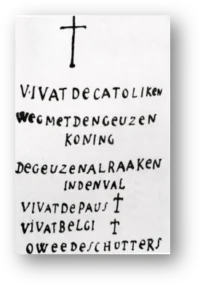 VIVAT DE CATOLIKEN
WEG MET DEN GEUZEN
KONING
DE GEUZEN AL RAAKEN
IN DEN VAL
VIVAT DE PAUS
VIVAT BELGI
O WEE DE SCHUTTERS